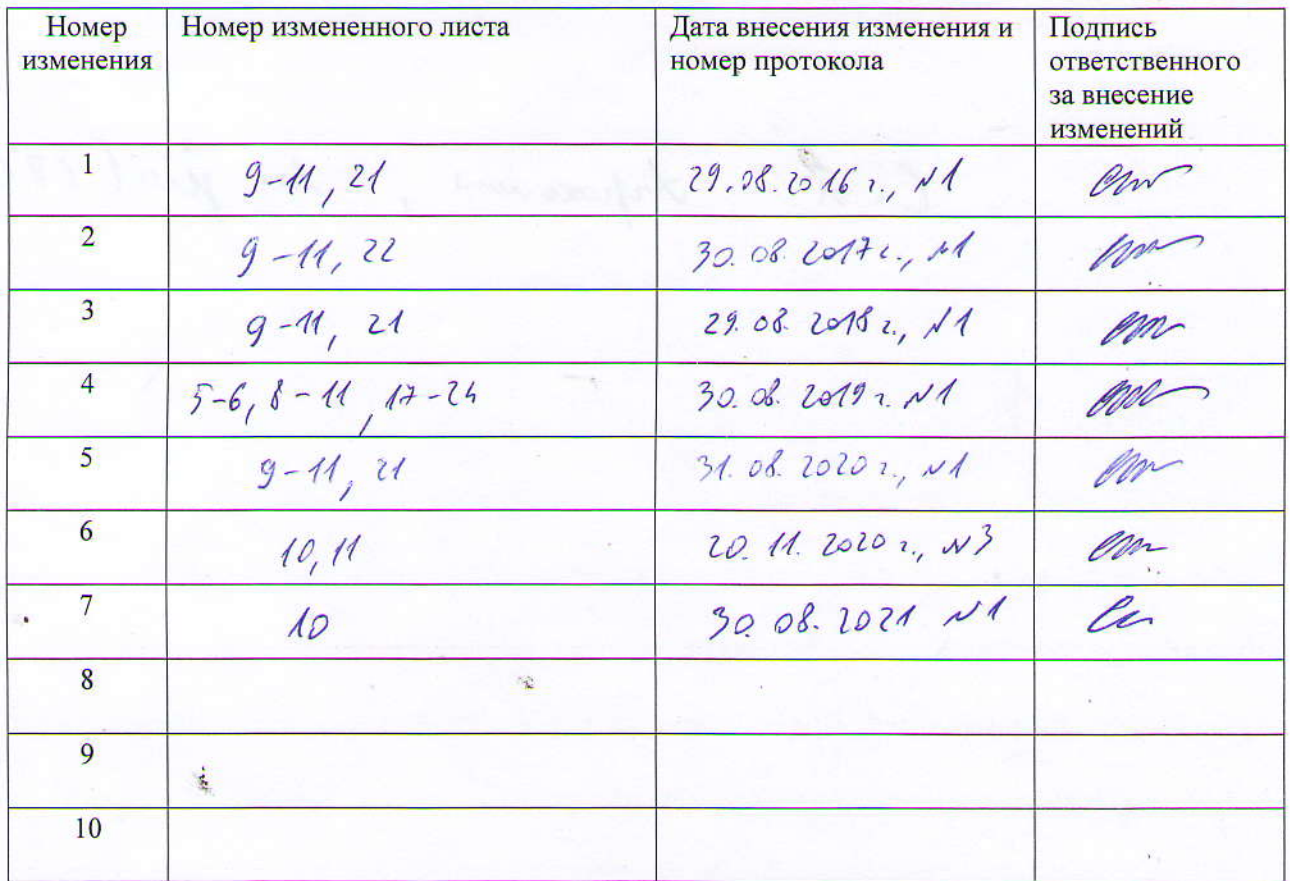 Номер изменения | Номер измененного листа | Дата внесения изменения и номер протокола | Подпись ответственного за внесение изменений
1 | 9-11, 21 | 29.08.2016 г., №1
2 | 9-11, 22 | 30.08.2017 г., №1
3 | 9-11, 21 | 29.08.2018 г., №1
4 | 5-6, 8-11, 17-24 | 30.08.2019 г. №1
5 | 9-11, 21 | 31.08.2020 г., №1
6 | 10, 11 | 20.11.2020 г., №3
7 | 10 | 30.08.2021 №1
8
9
10